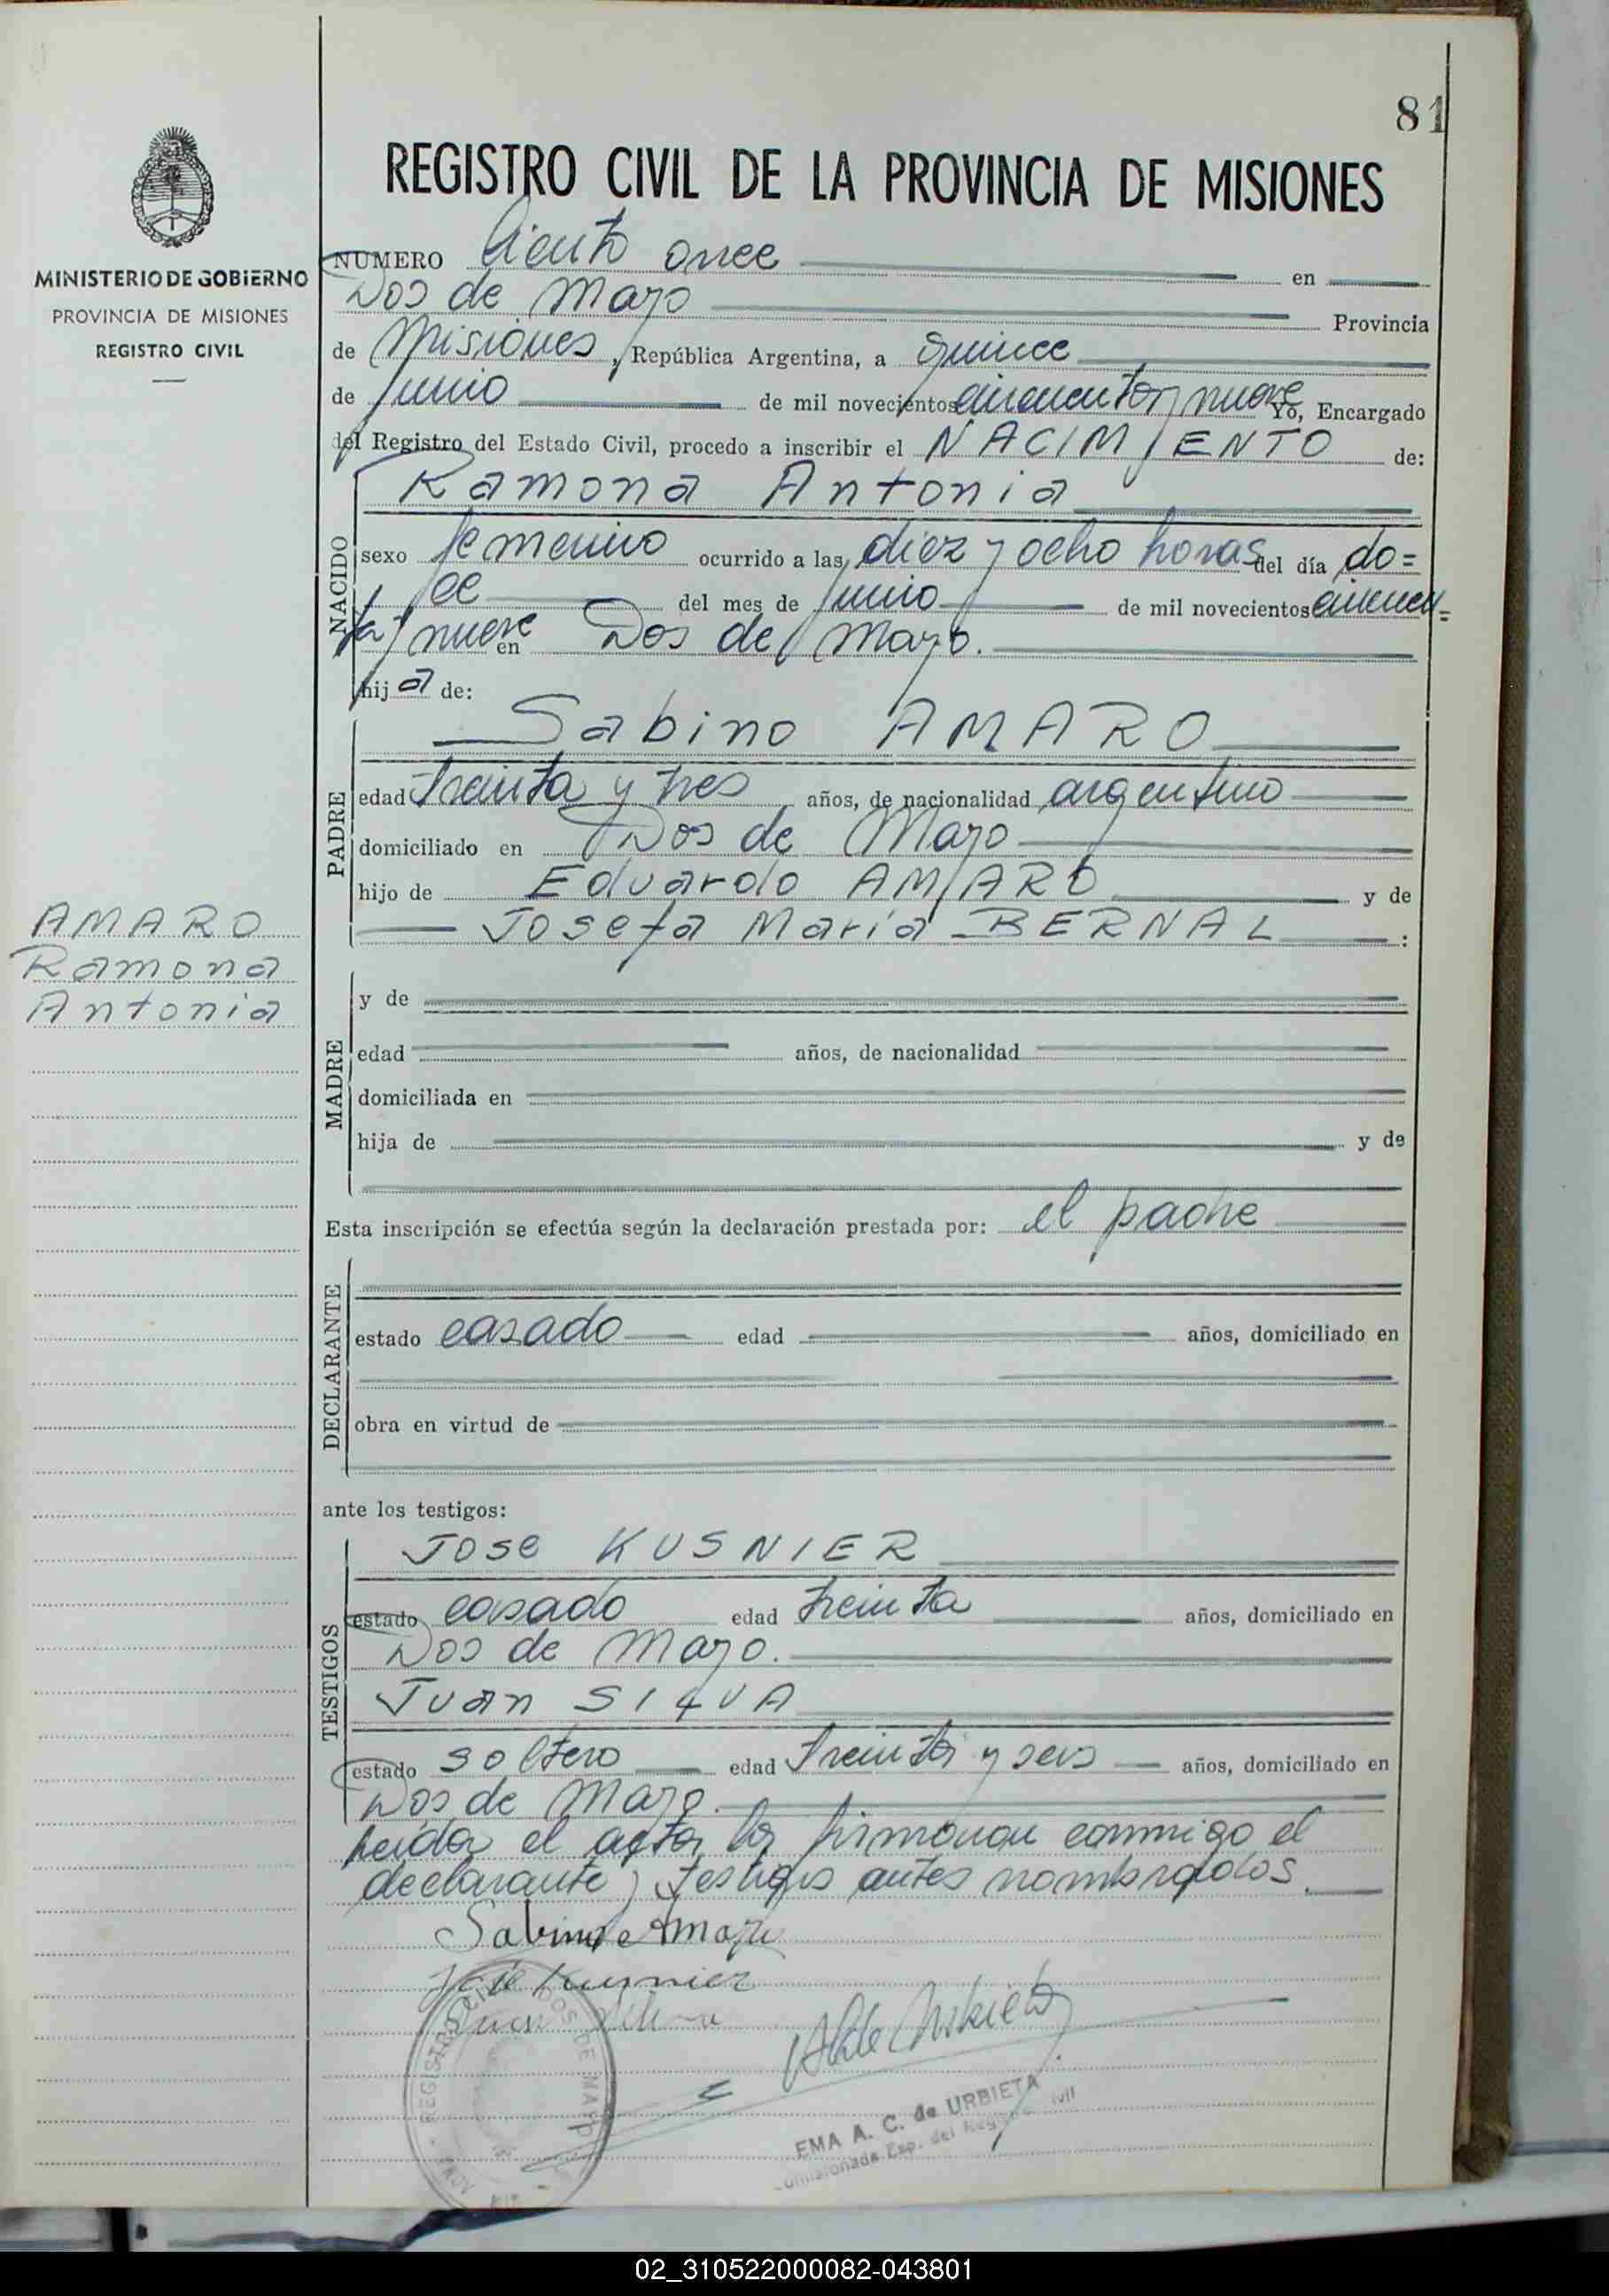 81
REGISTRO CIVIL DE LA PROVINCIA DE MISIONES
MINISTERIO DE GOBIERNO
PROVINCIA DE MISIONES
REGISTRO CIVIL
NUMERO Ciento once en
Dos de Mayo Provincia
de Misiones, República Argentina, a quince
de junio de mil novecientos cincuenta y nueve Yo, Encargado
del Registro del Estado Civil, procedo a inscribir el NACIMIENTO de:
Ramona Antonia
NACIDO
sexo femenino ocurrido a las diez y ocho horas del día do=
ce del mes de junio de mil novecientos cincuen=
ta y nueve en Dos de Mayo.
hija de:
Sabino AMARO
PADRE
edad treinta y tres años, de nacionalidad argentino
domiciliado en Dos de Mayo
hijo de Eduardo AMARO y de
Josefa María BERNAL :
AMARO
Ramona
Antonia
MADRE
y de
edad años, de nacionalidad
domiciliada en
hija de y de
Esta inscripción se efectúa según la declaración prestada por: el padre
DECLARANTE
estado casado edad años, domiciliado en
obra en virtud de
ante los testigos:
TESTIGOS
Jose KUSNIER
estado casado edad treinta años, domiciliado en
Dos de Mayo.
Juan SILVA
estado soltero edad treinta y seis años, domiciliado en
Dos de Mayo.
Leída el acta, la firmaron conmigo el
declarante y testigos antes nombrados.
Sabino Amaro
José Kusnier
Juan Silva
REGISTRO CIVIL DOS DE MAYO
EMA A. C. de URBIETA
Comisionada Esp. del Registro Civil
02_310522000082-043801